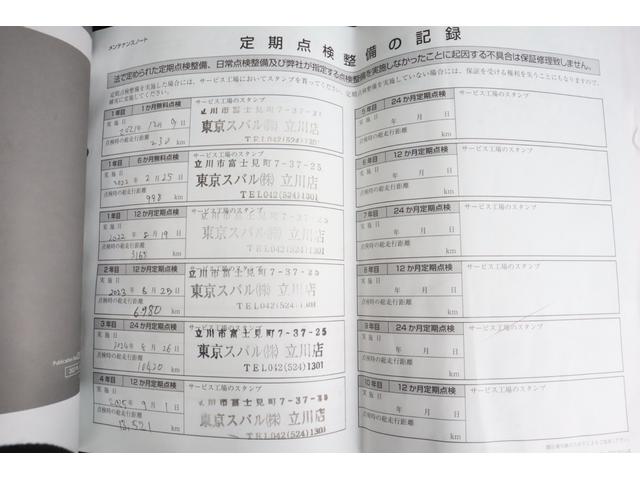 メンテナンスノート
定期点検整備の記録
法で定められた定期点検整備、日常点検整備及び弊社が指定する点検整備を実施しなかったことに起因する不具合は保証修理致しません。
定期点検整備を実施した場合には、サービス工場においてスタンプを貰ってください。定期点検整備を実施していない場合には、保証を受ける権利を失うこともありますので、
確実に実施してください。
1年目 1か月無料点検
サービス工場のスタンプ
実施日
2021年12月9日
点検時の総走行距離
238 km
立川市富士見町7-37-25
東京スバル㈱ 立川店
TEL042(524)1301
1年目 6か月無料点検
サービス工場のスタンプ
実施日
2022年2月25日
点検時の総走行距離
998 km
立川市富士見町7-37-25
東京スバル㈱ 立川店
TEL042(524)1301
1年目 12か月定期点検
サービス工場のスタンプ
実施日
2022年8月19日
点検時の総走行距離
3165 km
立川市富士見町7-37-25
東京スバル㈱ 立川店
TEL042(524)1301
2年目 12か月定期点検
サービス工場のスタンプ
実施日
2023年8月25日
点検時の総走行距離
6980 km
立川市富士見町7-37-25
東京スバル㈱ 立川店
TEL042(524)1301
3年目 24か月定期点検
サービス工場のスタンプ
実施日
2024年8月26日
点検時の総走行距離
10420 km
立川市富士見町7-37-25
東京スバル㈱ 立川店
TEL042(524)1301
4年目 12か月定期点検
サービス工場のスタンプ
実施日
2025年9月1日
点検時の総走行距離
13,521 km
立川市富士見町7-37-25
東京スバル㈱ 立川店
TEL042(524)1301
5年目 24か月定期点検
サービス工場のスタンプ
実施日
年 月 日
点検時の総走行距離
km
6年目 12か月定期点検
サービス工場のスタンプ
実施日
年 月 日
点検時の総走行距離
km
7年目 24か月定期点検
サービス工場のスタンプ
実施日
年 月 日
点検時の総走行距離
km
8年目 12か月定期点検
サービス工場のスタンプ
実施日
年 月 日
点検時の総走行距離
km
9年目 24か月定期点検
サービス工場のスタンプ
実施日
年 月 日
点検時の総走行距離
km
10年目 12か月定期点検
サービス工場のスタンプ
実施日
年 月 日
点検時の総走行距離
km